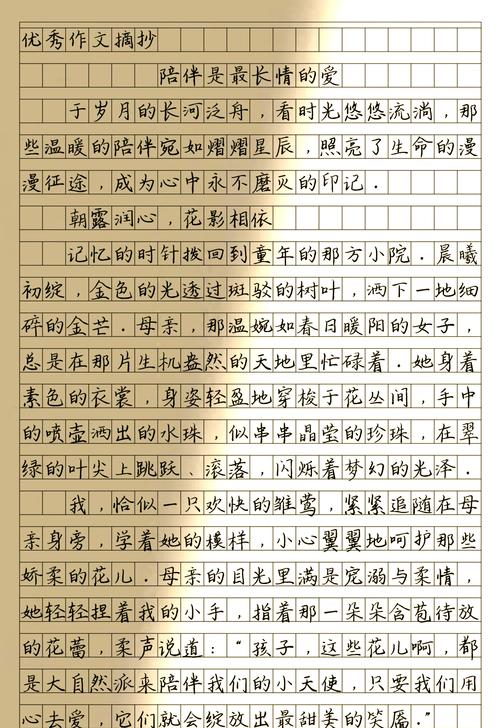 优秀作文摘抄
陪伴是最长情的爱
于岁月的长河泛舟，看时光悠悠流淌，那
些温暖的陪伴宛如熠熠星辰，照亮了生命的漫
漫征途，成为心中永不磨灭的印记．
朝露润心，花影相依
记忆的时针拨回到童年的那方小院．晨曦
初绽，金色的光透过斑驳的树叶，洒下一地细
碎的金芒．母亲，那温婉如春日暖阳的女子，
总是在那片生机盎然的天地里忙碌着．她身着
素色的衣裳，身姿轻盈地穿梭于花丛间，手中
的喷壶洒出的水珠，似串串晶莹的珍珠，在翠
绿的叶尖上跳跃、滚落，闪烁着梦幻的光泽．
我，恰似一只欢快的雏莺，紧紧追随在母
亲身旁，学着她的模样，小心翼翼地呵护那些
娇柔的花儿．母亲的目光里满是宠溺与柔情，
她轻轻捏着我的小手，指着那一朵朵含苞待放
的花蕾，柔声说道：“孩子，这些花儿啊，都
是大自然派来陪伴我们的小天使，只要我们用
心去爱，它们就会绽放出最甜美的笑靥．”